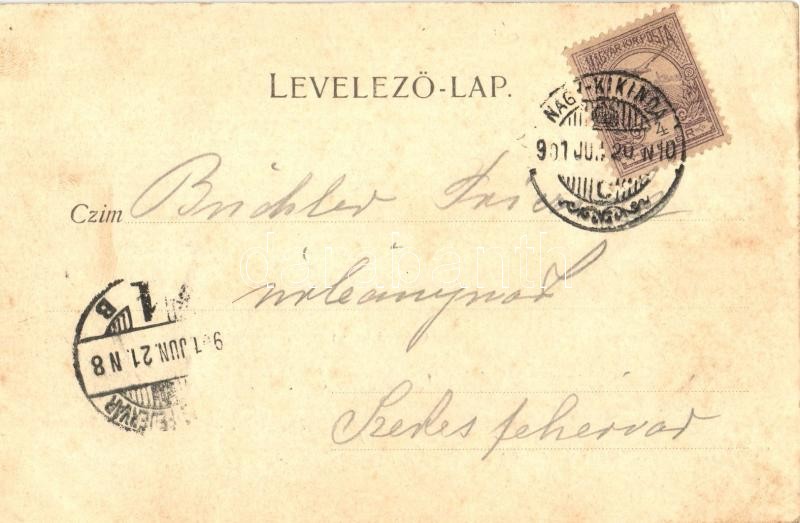 LEVELEZŐ-LAP.
MAGYAR KIR. POSTA
4
NAGY-KIKINDA
901 JUN. 20. N10
C
Czim Büchler
úrleánynak
Székesfehérvár
1
B
901 JUN. 21. N 8
FEHÉRVÁR
darabanth